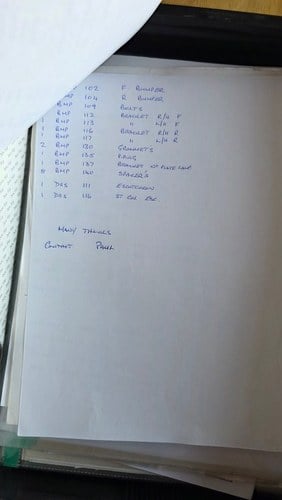 102 F BUMPER
104 R BUMPER
BMP 109 BOLTS
1 BMP 112 BRACKET R/H F
1 BMP 113 " L/H F
1 BMP 116 BRACKET R/H R
1 BMP 117 " L/H R
2 BMP 130 GROMMETS
1 BMP 135
1 BMP 137 BRACKET
8 BMP 140 SPACERS
1 DSS 111 ESCUTCHEON
1 DSS 116 ST COL
MANY THANKS
CONTACT PAUL